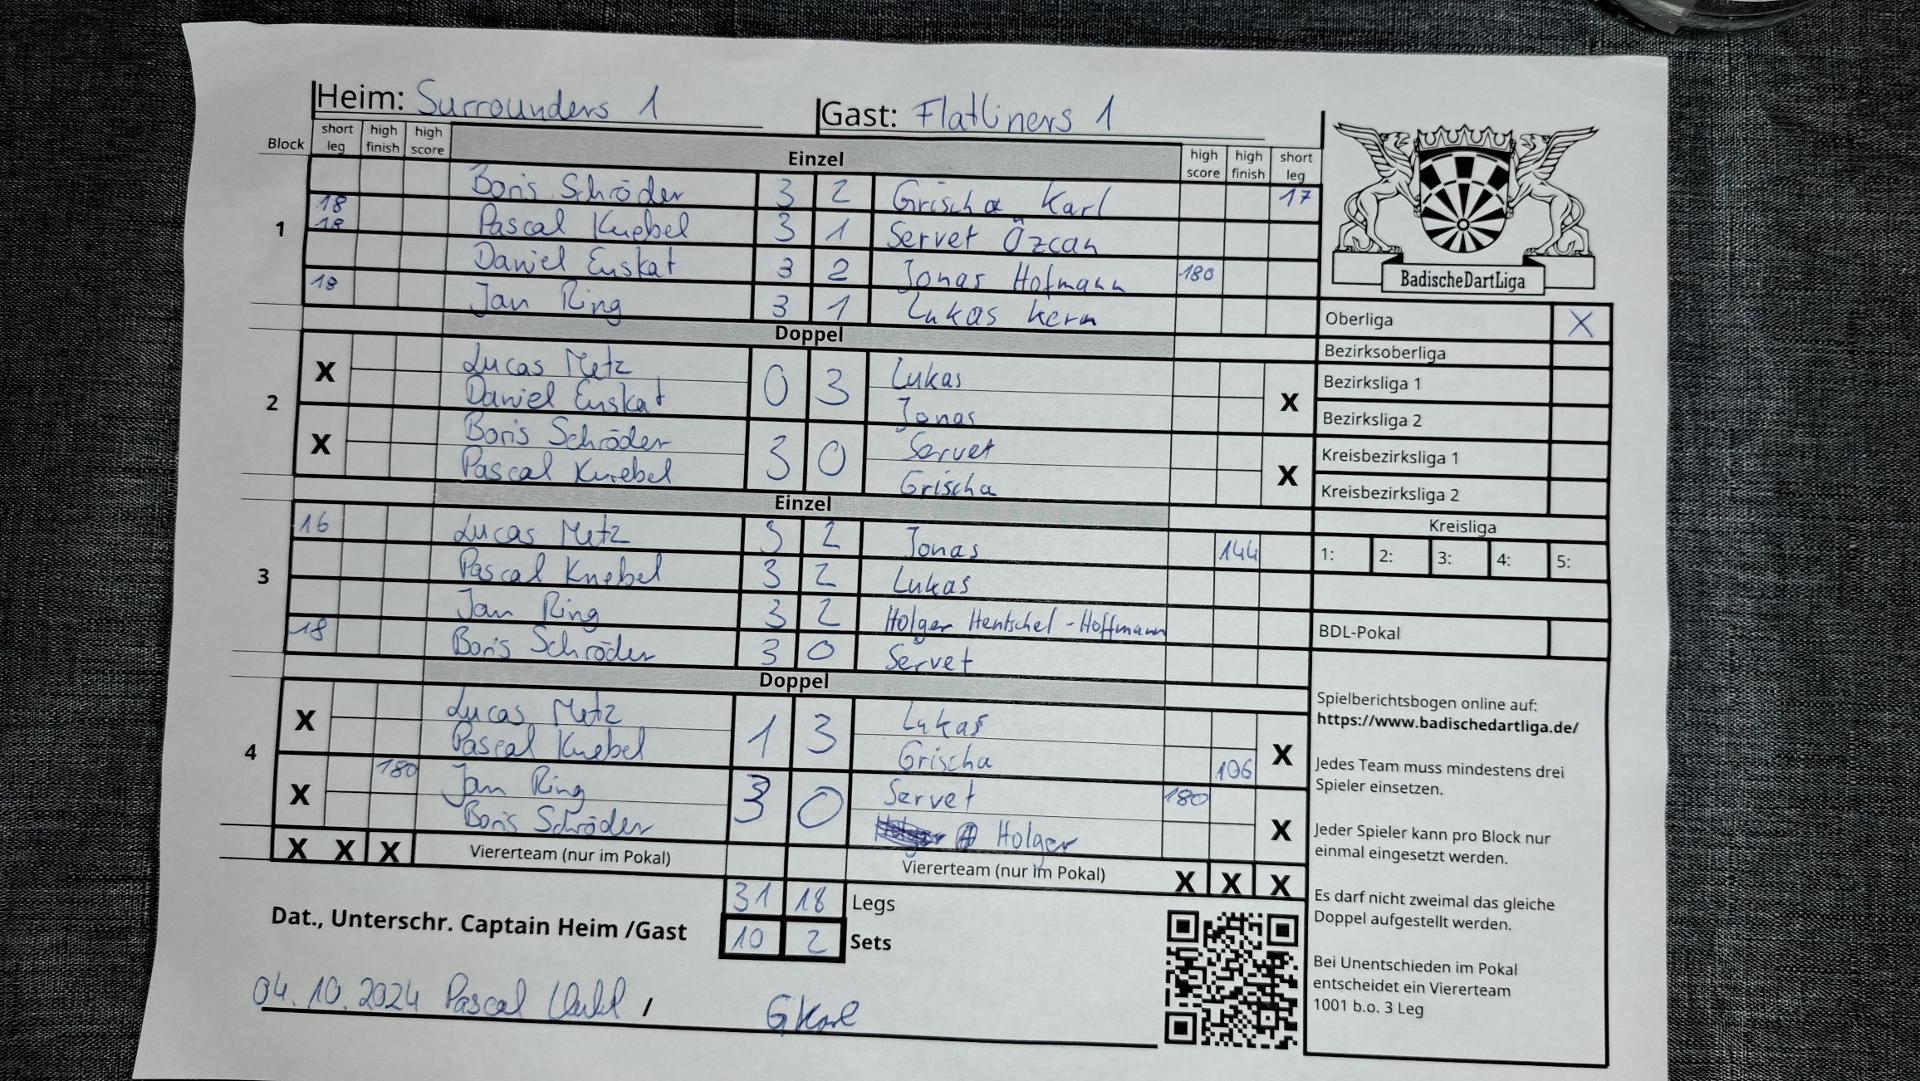 Heim: Surrounders 1 Gast: Flatliners 1
Block short leg high finish high score Einzel high score high finish short leg
Boris Schröder 3 2 Grischa Karl 17
1 18 18 Pascal Knebel 3 1 Servet Özcan
Daniel Euskat 3 2 Jonas Hofmann 180
18 Jan Ring 3 1 Lukas Kern
Doppel
2 X Lucas Metz 0 3 Lukas X
Daniel Euskat Jonas
X Boris Schröder 3 0 Servet X
Pascal Knebel Grischa
Einzel
3 16 Lucas Metz 3 2 Jonas 144
Pascal Knebel 3 2 Lukas
Jan Ring 3 2 Holger Hentschel-Hoffmann
18 Boris Schröder 3 0 Servet
Doppel
4 X Lucas Metz 1 3 Lukas X
Pascal Knebel Grischa 106
X 180 Jan Ring 3 0 Servet 180 X
Boris Schröder Holger
X X X Viererteam (nur im Pokal) Viererteam (nur im Pokal) X X X
31 18 Legs
Dat., Unterschr. Captain Heim /Gast 10 2 Sets
04.10.2024 Pascal / GKarl
BadischeDartLiga
Oberliga X
Bezirksoberliga
Bezirksliga 1
Bezirksliga 2
Kreisbezirksliga 1
Kreisbezirksliga 2
Kreisliga
1: 2: 3: 4: 5:
BDL-Pokal
Spielberichtsbogen online auf:
https://www.badischedartliga.de/
Jedes Team muss mindestens drei
Spieler einsetzen.
Jeder Spieler kann pro Block nur
einmal eingesetzt werden.
Es darf nicht zweimal das gleiche
Doppel aufgestellt werden.
Bei Unentschieden im Pokal
entscheidet ein Viererteam
1001 b.o. 3 Leg